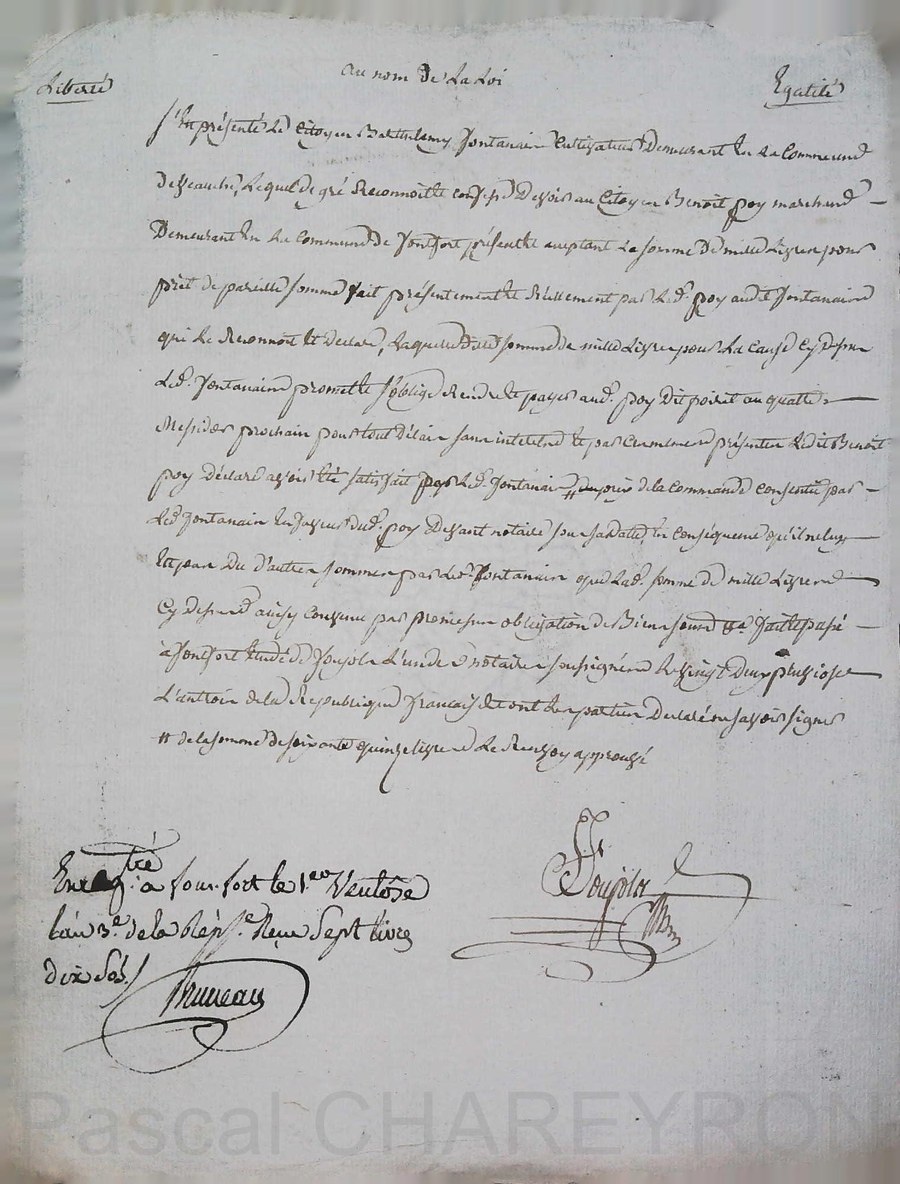 Liberté
au nom de La Loi
Egalité
S'est présenté Le Citoyen Barthelemy fontanair Cultivateur Demeurant En La Commune
Lequel de gré Reconnoit et Confesse Devoir au Citoyen Benoit poy marchand
Demeurant En La Commune de fonfort présent et aceptant La somme De mille Livres pour
prêt de pareille somme fait présentement et Réellement par Led. poy audit fontanair
qui Le Reconnoit Et Declare, Laquelle dite somme de mille Livres pour La Cause Cy dessus
Led. fontanair promet et s'oblige Rendre et payer aud. poy Dit poiret au quatre
Messidor prochain pour tout Délair sans interet et par Cermement présenter Ledit Benoit
poy Déclare avoir Eté satisfait par Led. fontanair # du prix de la Commande Consentie par
Led. fontanair En faveur dud. poy Devant notaire sou sa datte, En Conséquence qu'il ne luy
Est pour Du D'autres sommes par Led. fontanair que Lad. somme de mille Livres
Cy Dessus ainsy Convenu par promesse obligation de Bien soumd fait et passé
à fonfort Etude de foujols L'un de notaires soussignés Le vingt Deux pluviose
L'an troix de la Republique francaise Et ont Les parties Declaré ne savoir signer
# de la somme de soixante quinze livres Le Renvoy approuvé
Enregtré à fonfort le 1er Ventôse
l'an 3e de la Répque Reçu Sept livres
dix sols
Bruneau
Foujols
Nre
Pascal CHAREYRON